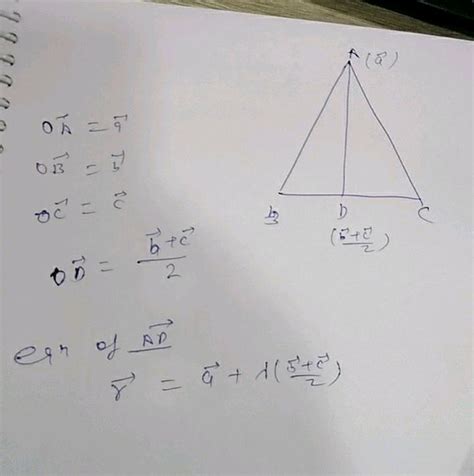 A (a⃗)
OA⃗ = a⃗
OB⃗ = b⃗
OC⃗ = c⃗
OD⃗ = (b⃗+c⃗)/2
B D C
((b⃗+c⃗)/2)
eqn of AD⃗
r⃗ = a⃗ + λ((b⃗+c⃗)/2)